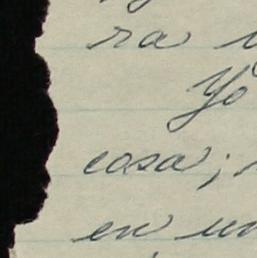 ra
Yo
cosa;
en un